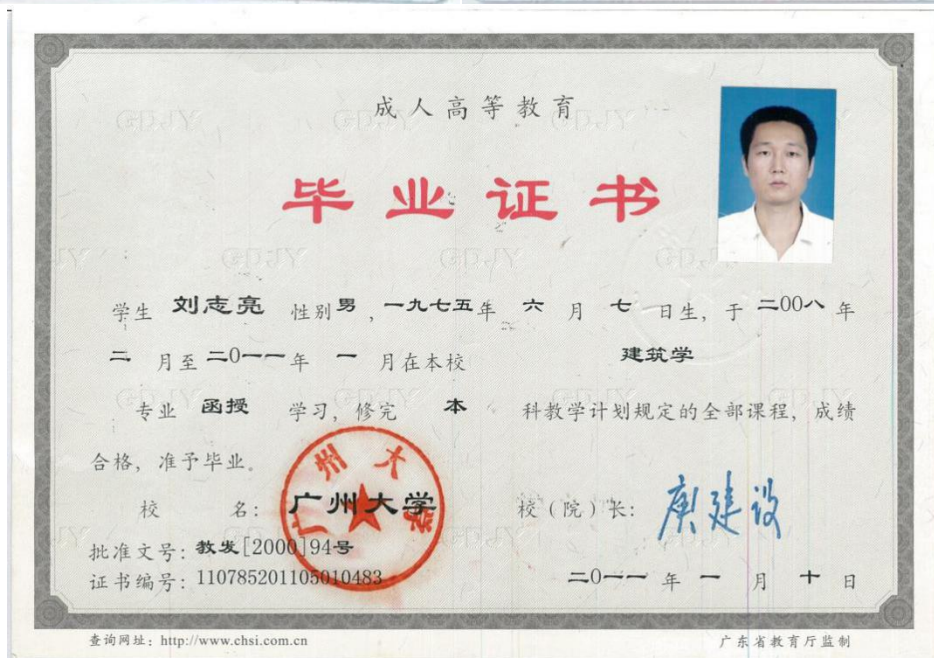 成人高等教育
毕业证书
学生 刘志亮 性别 男 ,一九七五年 六 月 七 日生, 于 二00八 年
二 月至 二0一一 年 一 月在本校 建筑学
专业 函授 学习, 修完 本 科教学计划规定的全部课程, 成绩
合格, 准予毕业。
校 名: 广州大学 校(院)长: 庾建设
广州大学
批准文号: 教发[2000]94号
证书编号: 110785201105010483 二0一一 年 一 月 十 日
查询网址: http://www.chsi.com.cn 广东省教育厅监制